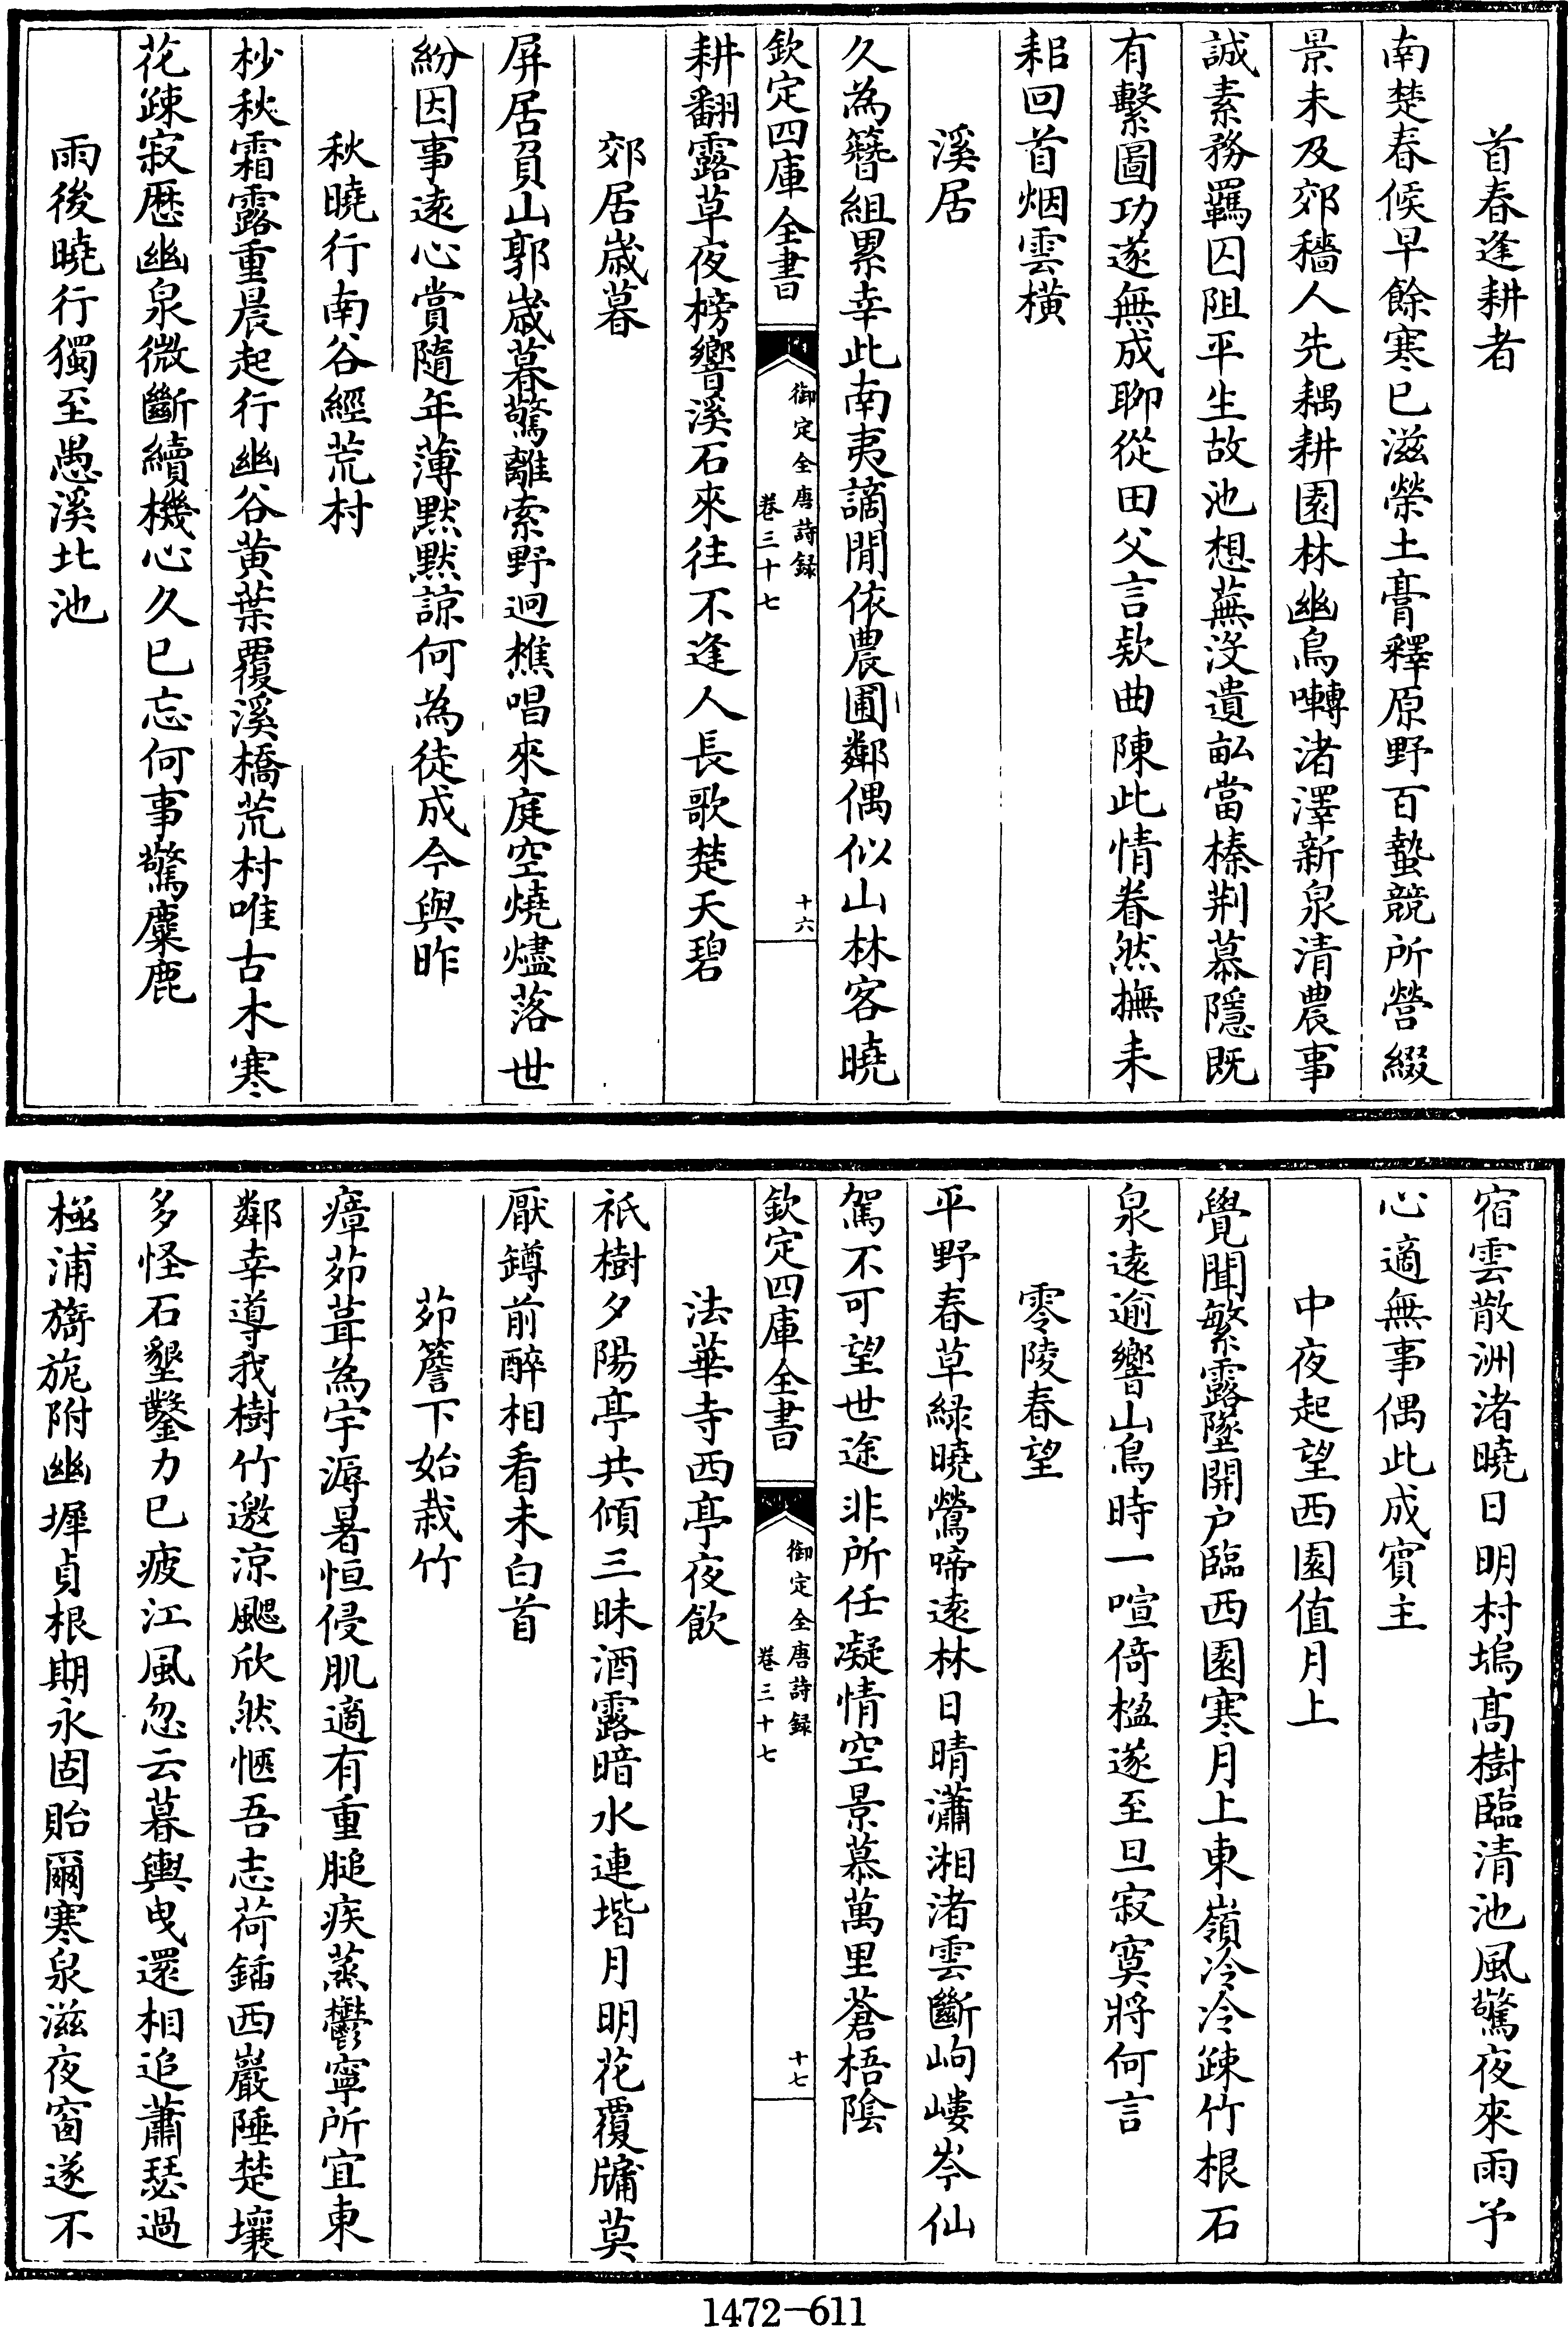 首春逢耕者
南楚春候早餘寒已滋榮土膏釋原野百蟄競所營綴
景未及郊穡人先耦耕園林幽鳥囀渚澤新泉清農事
誠素務羈囚阻平生故池想蕪沒遺畝當榛荆慕隱既
有繫圖功遂無成聊從田父言欵曲陳此情眷然撫耒
耜回首烟雲橫
溪居
久為簪組累幸此南夷謫閒依農圃鄰偶似山林客曉
欽定四庫全書
御定全唐詩録
卷三十七
十六
耕翻露草夜榜響溪石來往不逢人長歌楚天碧
郊居歲暮
屏居負山郭歲暮驚離索野迥樵唱來庭空燒燼落世
紛因事遠心賞隨年薄默默諒何為徒成今與昨
秋曉行南谷經荒村
杪秋霜露重晨起行幽谷黃葉覆溪橋荒村唯古木寒
花疎寂歴幽泉微斷續機心久已忘何事驚麋鹿
雨後曉行獨至愚溪北池
宿雲散洲渚曉日明村塢高樹臨清池風驚夜來雨予
心適無事偶此成賓主
中夜起望西園值月上
覺聞繁露墜開户臨西園寒月上東嶺冷冷疎竹根石
泉遠逾響山鳥時一喧倚楹遂至旦寂寞將何言
零陵春望
平野春草綠曉鶯啼遠林日晴瀟湘渚雲斷岣嶁岑仙
駕不可望世途非所任凝情空景慕萬里蒼梧陰
欽定四庫全書
御定全唐詩録
卷三十七
十七
法華寺西亭夜飲
祇樹夕陽亭共傾三昧酒露暗水連堦月明花覆牖莫
厭罇前醉相看未白首
茆簷下始栽竹
瘴茆葺為宇溽暑恒侵肌適有重膇疾蒸鬱寧所宜東
鄰幸導我樹竹邀涼颸欣然愜吾志荷鍤西巖陲楚壤
多怪石墾鑿力已疲江風忽云暮輿曳還相追蕭瑟過
極浦旖旎附幽墀貞根期永固貽爾寒泉滋夜窗遂不
1472-611